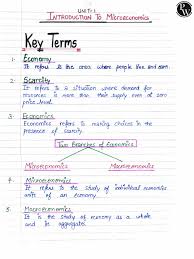 UNIT-1
INTRODUCTION TO MICROECONOMICS
Key Terms
1. Economy
It refers to the area where people live and earn.
2. Scarcity
It refers to a situation where demand for
resources is more than their supply even at zero
price level.
3. Economics
Economics refers to making choices in the
presence of scarcity.
Two Branches of Economics
Microeconomics Macroeconomics
4. Microeconomics
It refers to the study of individual economic
units of an economy.
5. Macroeconomics
It is the study of economy as a whole
and its aggregates.